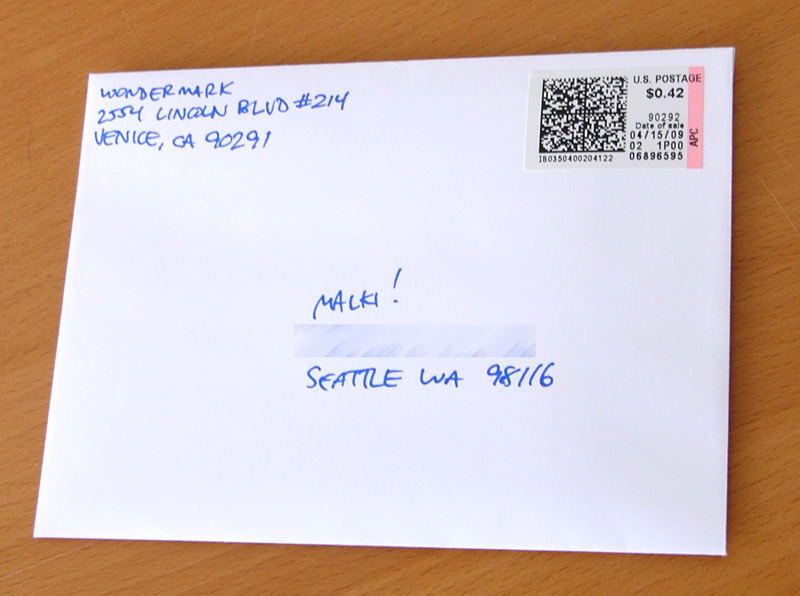 WONDERMARK
2554 LINCOLN BLVD #214
VENICE, CA 90291
U.S. POSTAGE
$0.42
90292
Date of sale
04/15/09
02 1P00
06896595
APC
IB0350400204122
MALKI!
SEATTLE WA 98116